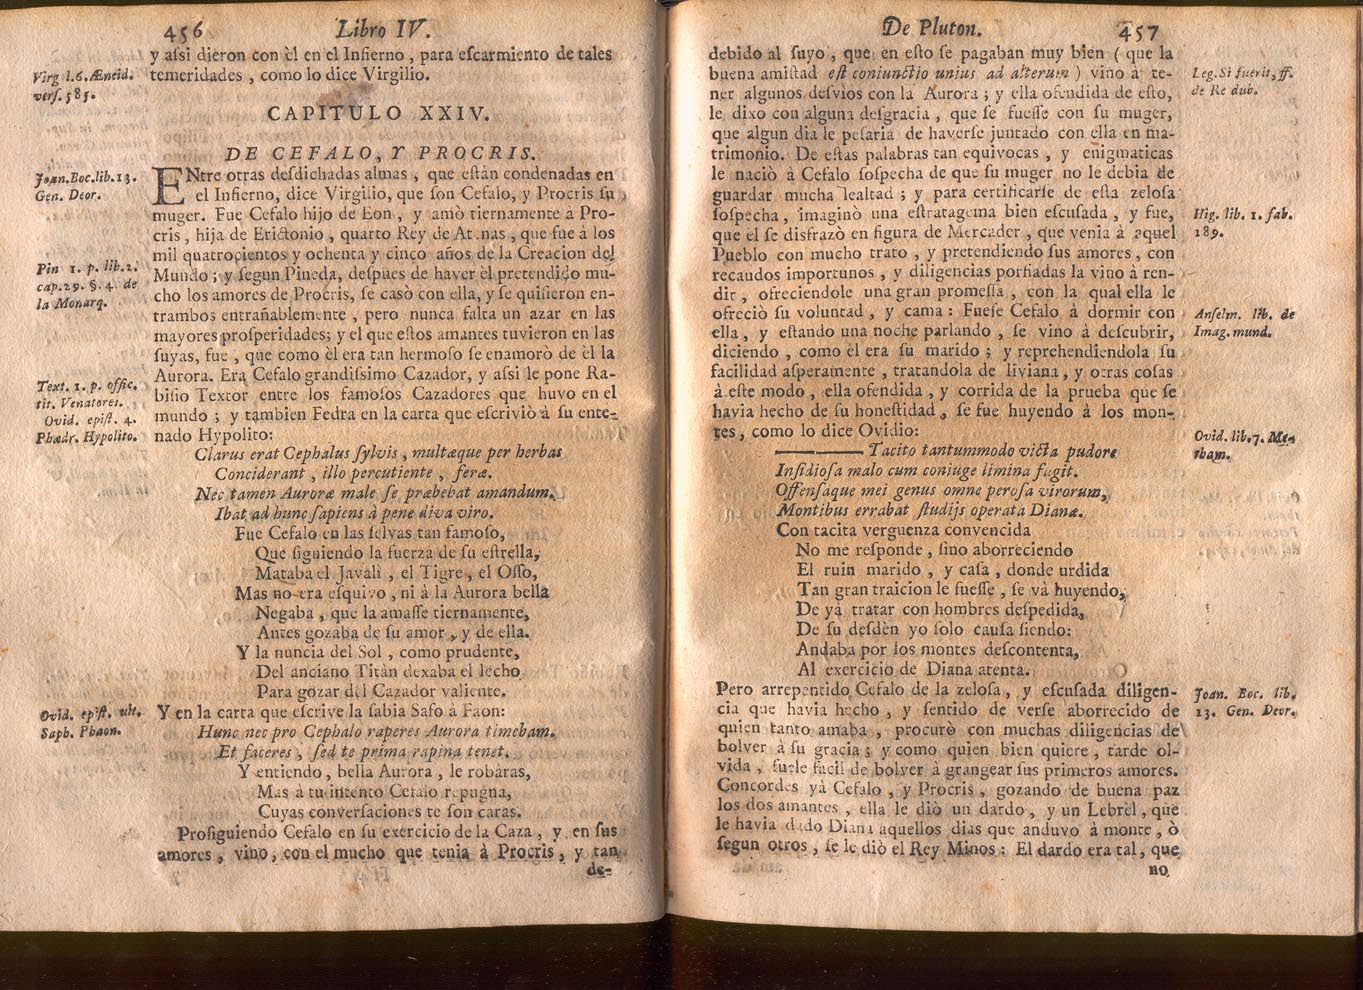 456 Libro IV.
y assi dieron con èl en el Infierno, para escarmiento de tales
Virg l.6. Æneid. temeridades, como lo dice Virgilio.
vers. 585.
CAPITULO XXIV.
DE CEFALO, Y PROCRIS.
Joan. Boc. lib. 13. ENtre otras desdichadas almas, que estàn condenadas en
Gen. Deor. el Infierno, dice Virgilio, que son Cefalo, y Procris su
muger. Fue Cefalo hijo de Eon, y amò tiernamente à Pro-
cris, hija de Erictonio, quarto Rey de Atenas, que fue à los
mil quatrocientos y ochenta y cinco años de la Creacion del
Pin 1. p. lib. 2. Mundo; y segun Pineda, despues de haver èl pretendido mu-
cap. 29. §. 4. de cho los amores de Procris, se casò con ella, y se quisieron en-
la Monarq. trambos entrañablemente, pero nunca falta un azar en las
mayores prosperidades; y el que estos amantes tuvieron en las
suyas, fue, que como èl era tan hermoso se enamorò de èl la
Text. 1. p. offic. Aurora. Era Cefalo grandissimo Cazador, y assi le pone Ra-
tit. Venatores. bisio Textor entre los famosos Cazadores que huvo en el
Ovid. epist. 4. mundo; y tambien Fedra en la carta que escriviò à su ente-
Phædr. Hypolito. nado Hypolito:
Clarus erat Cephalus sylvis, multæque per herbas
Conciderant, illo percutiente, feræ.
Nec tamen Auroræ male se præbebat amandum.
Ibat ad hunc sapiens à pene diva viro.
Fue Cefalo en las selvas tan famoso,
Que siguiendo la fuerza de su estrella,
Mataba el Javalì, el Tigre, el Osso,
Mas no era esquivo, ni à la Aurora bella
Negaba, que la amasse tiernamente,
Antes gozaba de su amor, y de ella.
Y la nuncia del Sol, como prudente,
Del anciano Titàn dexaba el lecho
Para gozar del Cazador valiente.
Ovid. epist. ult. Y en la carta que escrive la sabia Safo à Faon:
Saph. Phaon. Hunc nec pro Cephalo raperes Aurora timebam.
Et faceres, sed te prima rapina tenet.
Y entiendo, bella Aurora, le robàras,
Mas à tu intento Cefalo repugna,
Cuyas conversaciones te son caras.
Prosiguiendo Cefalo en su exercicio de la Caza, y en sus
amores, vino, con el mucho que tenia à Procris, y tan
de-
De Pluton. 457
debido al suyo, que en esto se pagaban muy bien (que la
buena amistad est coniunctio unius ad alterum) vino à te- Leg. Si fuerit, ff.
ner algunos desvios con la Aurora; y ella ofendida de esto, de Re dub.
le dixo con alguna desgracia, que se fuesse con su muger,
que algun dia le pesaria de haverse juntado con ella en ma-
trimonio. De estas palabras tan equivocas, y enigmaticas
le naciò à Cefalo sospecha de que su muger no le debia de
guardar mucha lealtad; y para certificarse de esta zelosa
sospecha, imaginò una estratagema bien escusada, y fue, Hig. lib. 1. fab.
que èl se disfrazò en figura de Mercader, que venia à aquel 189.
Pueblo con mucho trato, y pretendiendo sus amores, con
recaudos importunos, y diligencias porfiadas la vino à ren-
dir, ofreciendole una gran promessa, con la qual ella le
ofreciò su voluntad, y cama: Fuese Cefalo à dormir con Anselm. lib. de
ella, y estando una noche parlando, se vino à descubrir, Imag. mund.
diciendo, como èl era su marido; y reprehendiendola su
facilidad asperamente, tratandola de liviana, y otras cosas
à este modo, ella ofendida, y corrida de la prueba que se
havia hecho de su honestidad, se fue huyendo à los mon-
tes, como lo dice Ovidio: Ovid. lib. 7. Me-
Tacito tantummodo victa pudore tham.
Insidiosa malo cum coniuge limina fugit.
Offensaque mei genus omne perosa virorum,
Montibus errabat studijs operata Dianæ.
Con tacita verguenza convencida
No me responde, sino aborreciendo
El ruin marido, y casa, donde urdida
Tan gran traicion le fuesse, se và huyendo,
De yà tratar con hombres despedida,
De su desdèn yo solo causa siendo:
Andaba por los montes descontenta,
Al exercicio de Diana atenta.
Pero arrepentido Cefalo de la zelosa, y escusada diligen- Joan. Boc. lib.
cia que havia hecho, y sentido de verse aborrecido de 13. Gen. Deor.
quien tanto amaba, procurò con muchas diligencias de
bolver à su gracia; y como quien bien quiere, tarde ol-
vida, suele facil de bolver à grangear sus primeros amores.
Concordes yà Cefalo, y Procris, gozando de buena paz
los dos amantes, ella le diò un dardo, y un Lebrèl, que
le havia dado Diana aquellos dias que anduvo à monte, ò
segun otros, se le diò el Rey Minos: El dardo era tal, que
no